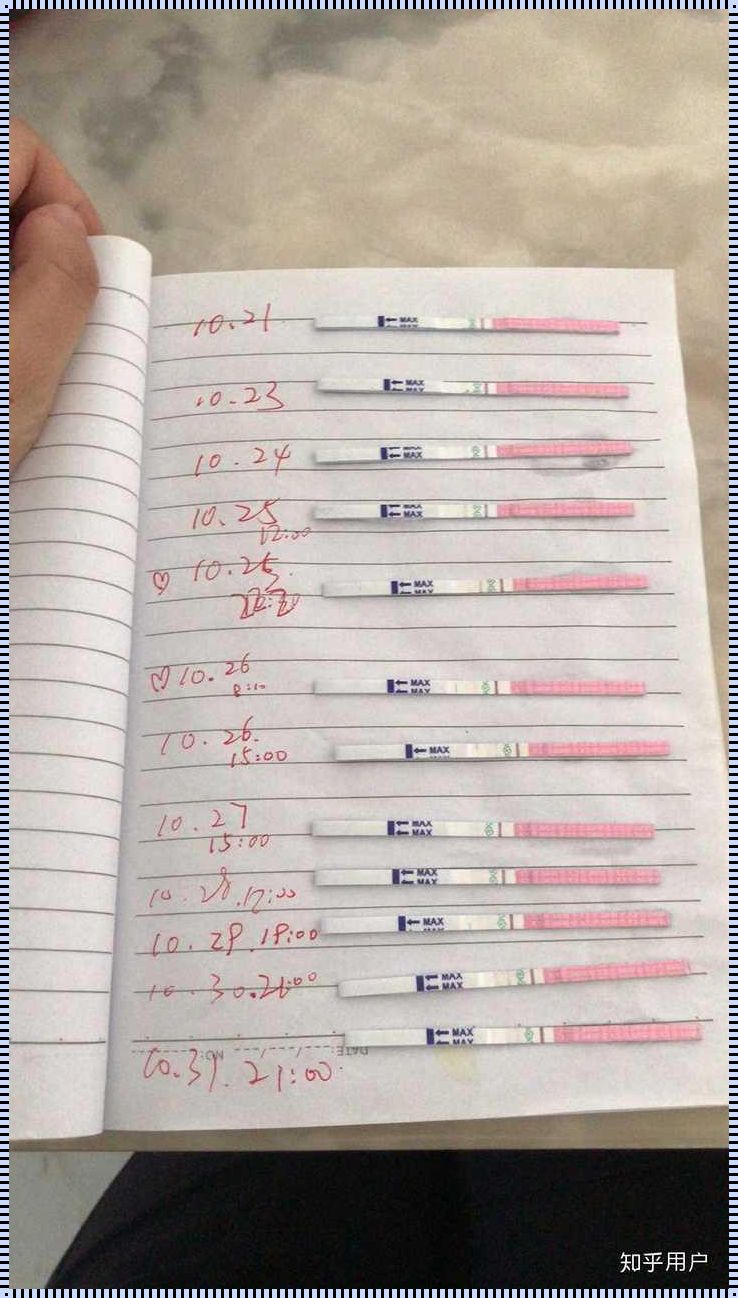 10.21
MAX
10.23
MAX
MAX
10.24
MAX
10.25
12:00
MAX
♡ 10.25
MAX
♡ 10.26
8:10
MAX
MAX
10.26.
15:00
MAX
10.27
15:00
MAX
MAX
10.28.17:00
MAX
MAX
10.29.18:00
MAX
10.30.21:00
MAX
MAX
MAX
DATE: NO:
10.31. 21:00
知乎用户